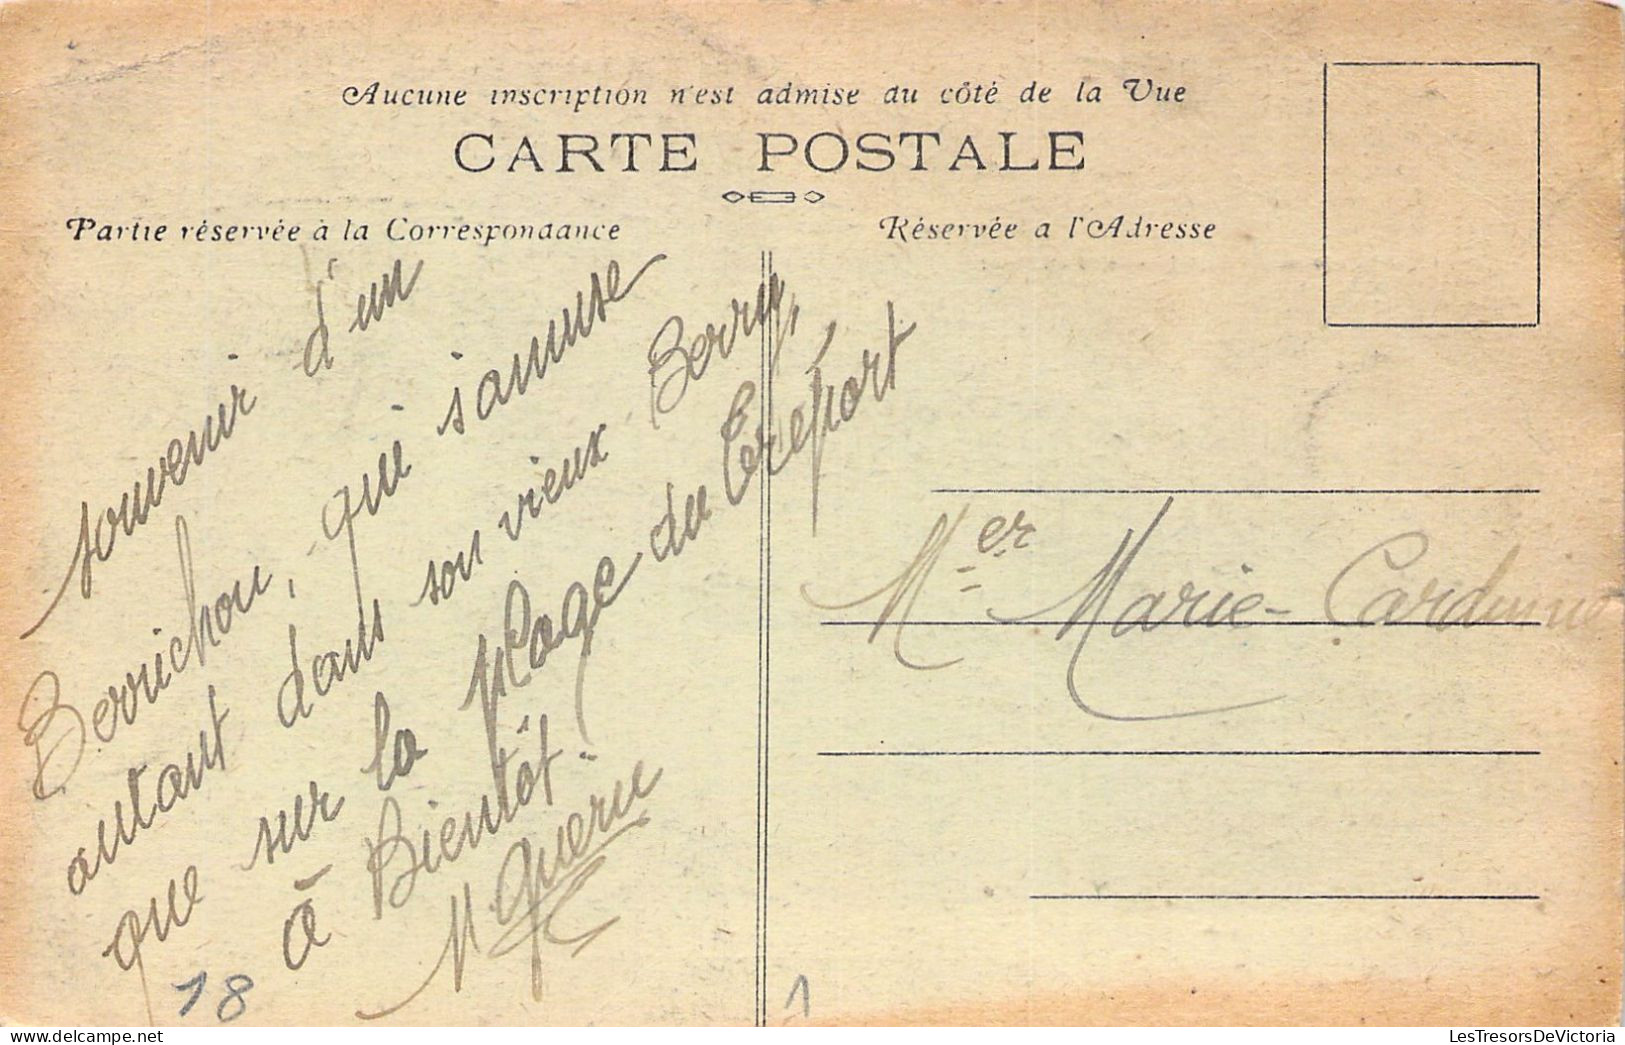 Aucune inscription n'est admise au côté de la Vue
CARTE POSTALE
Partie réservée à la Correspondance
Réservée a l'Adresse
souvenir d'un
Berrichon, qui s'amuse
autant dans son vieux Berry,
que sur la Plage du Tréport
à Bientôt.
M Queru
Mer Marie-Cardinne
18
1
LesTresorsDeVictoria